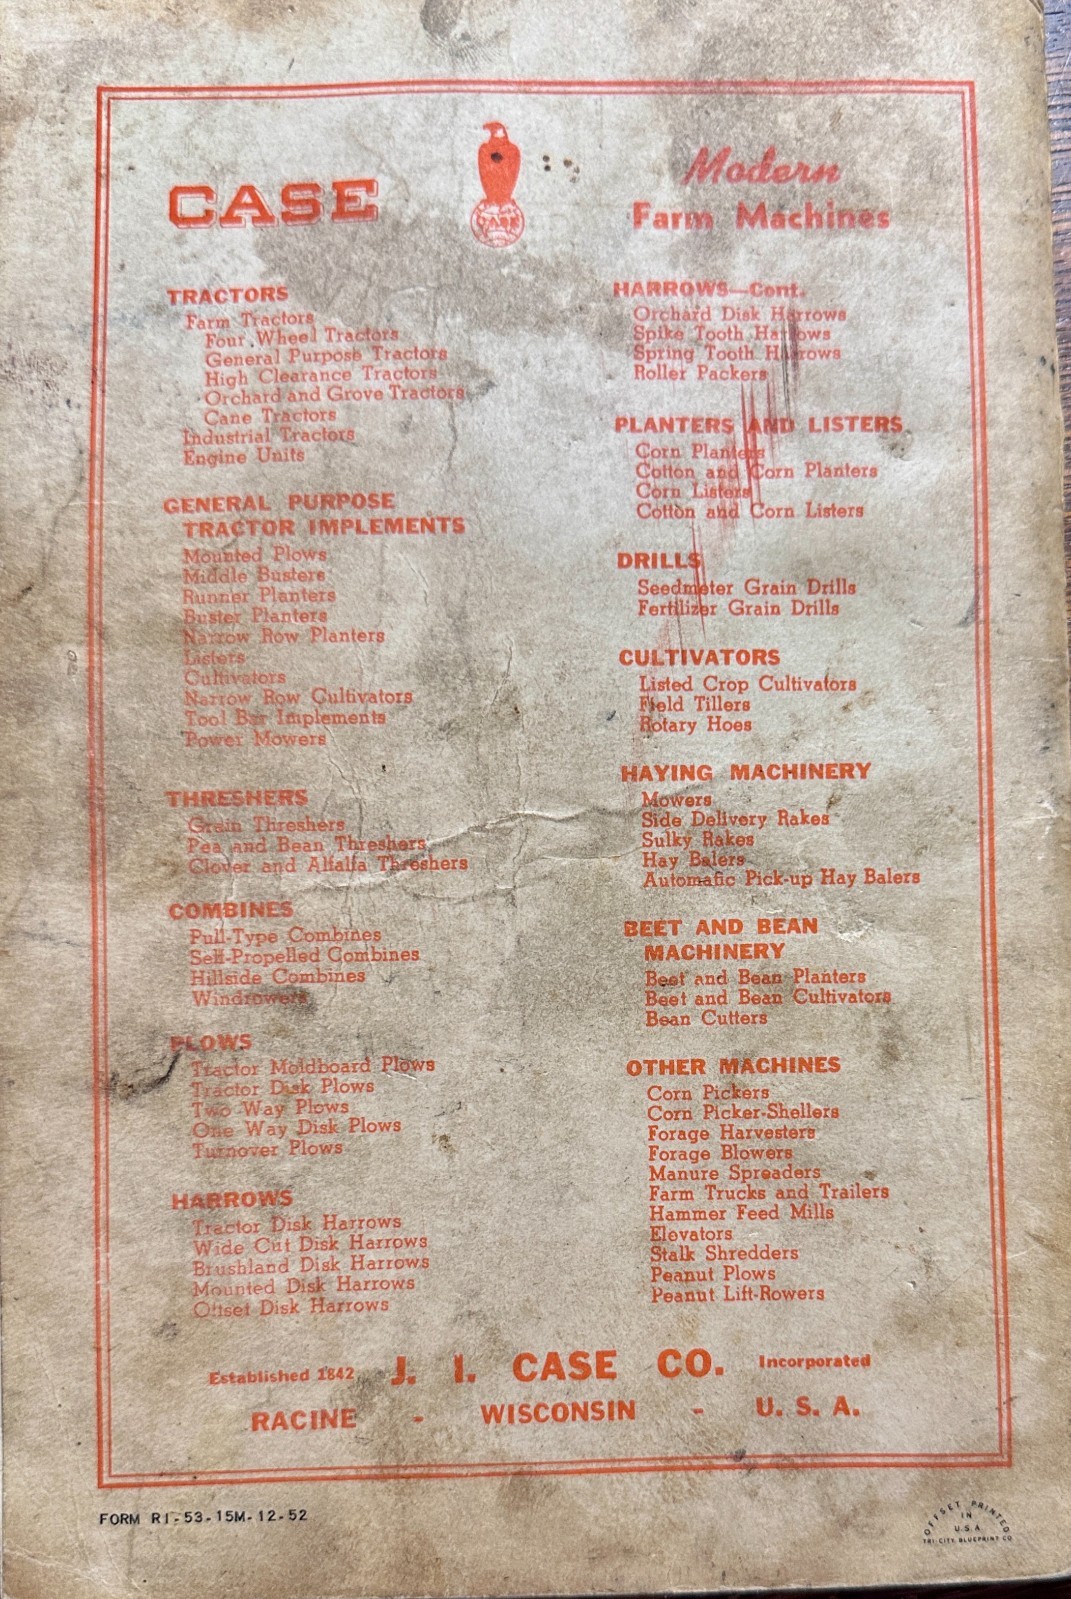 CASE
CASE
Modern
Farm Machines
TRACTORS
Farm Tractors
Four Wheel Tractors
General Purpose Tractors
High Clearance Tractors
Orchard and Grove Tractors
Cane Tractors
Industrial Tractors
Engine Units
GENERAL PURPOSE
TRACTOR IMPLEMENTS
Mounted Plows
Middle Busters
Runner Planters
Buster Planters
Narrow Row Planters
Listers
Cultivators
Narrow Row Cultivators
Tool Bar Implements
Power Mowers
THRESHERS
Grain Threshers
Pea and Bean Threshers
Clover and Alfalfa Threshers
COMBINES
Pull-Type Combines
Self-Propelled Combines
Hillside Combines
Windrowers
PLOWS
Tractor Moldboard Plows
Tractor Disk Plows
Two Way Plows
One Way Disk Plows
Turnover Plows
HARROWS
Tractor Disk Harrows
Wide Cut Disk Harrows
Brushland Disk Harrows
Mounted Disk Harrows
Offset Disk Harrows
HARROWS—Cont.
Orchard Disk Harrows
Spike Tooth Harrows
Spring Tooth Harrows
Roller Packers
PLANTERS AND LISTERS
Corn Planters
Cotton and Corn Planters
Corn Listers
Cotton and Corn Listers
DRILLS
Seedmeter Grain Drills
Fertilizer Grain Drills
CULTIVATORS
Listed Crop Cultivators
Field Tillers
Rotary Hoes
HAYING MACHINERY
Mowers
Side Delivery Rakes
Sulky Rakes
Hay Balers
Automatic Pick-up Hay Balers
BEET AND BEAN
MACHINERY
Beet and Bean Planters
Beet and Bean Cultivators
Bean Cutters
OTHER MACHINES
Corn Pickers
Corn Picker-Shellers
Forage Harvesters
Forage Blowers
Manure Spreaders
Farm Trucks and Trailers
Hammer Feed Mills
Elevators
Stalk Shredders
Peanut Plows
Peanut Lift-Rowers
Established 1842 J. I. CASE CO. Incorporated
RACINE - WISCONSIN - U. S. A.
FORM RI-53-15M-12-52
OFFSET PRINTED
IN
U.S.A
TRI-CITY BLUEPRINT CO